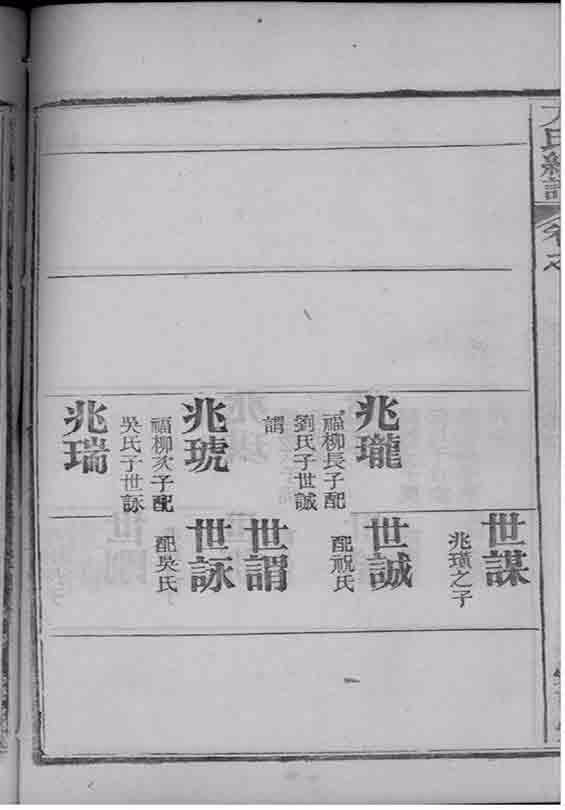 兆瓏
福柳長子配
劉氏子世誠
謂
兆琥
福柳次子配
吳氏子世詠
兆瑞
世謀
兆璜之子
世誠
配祝氏
世謂
世詠
配吳氏